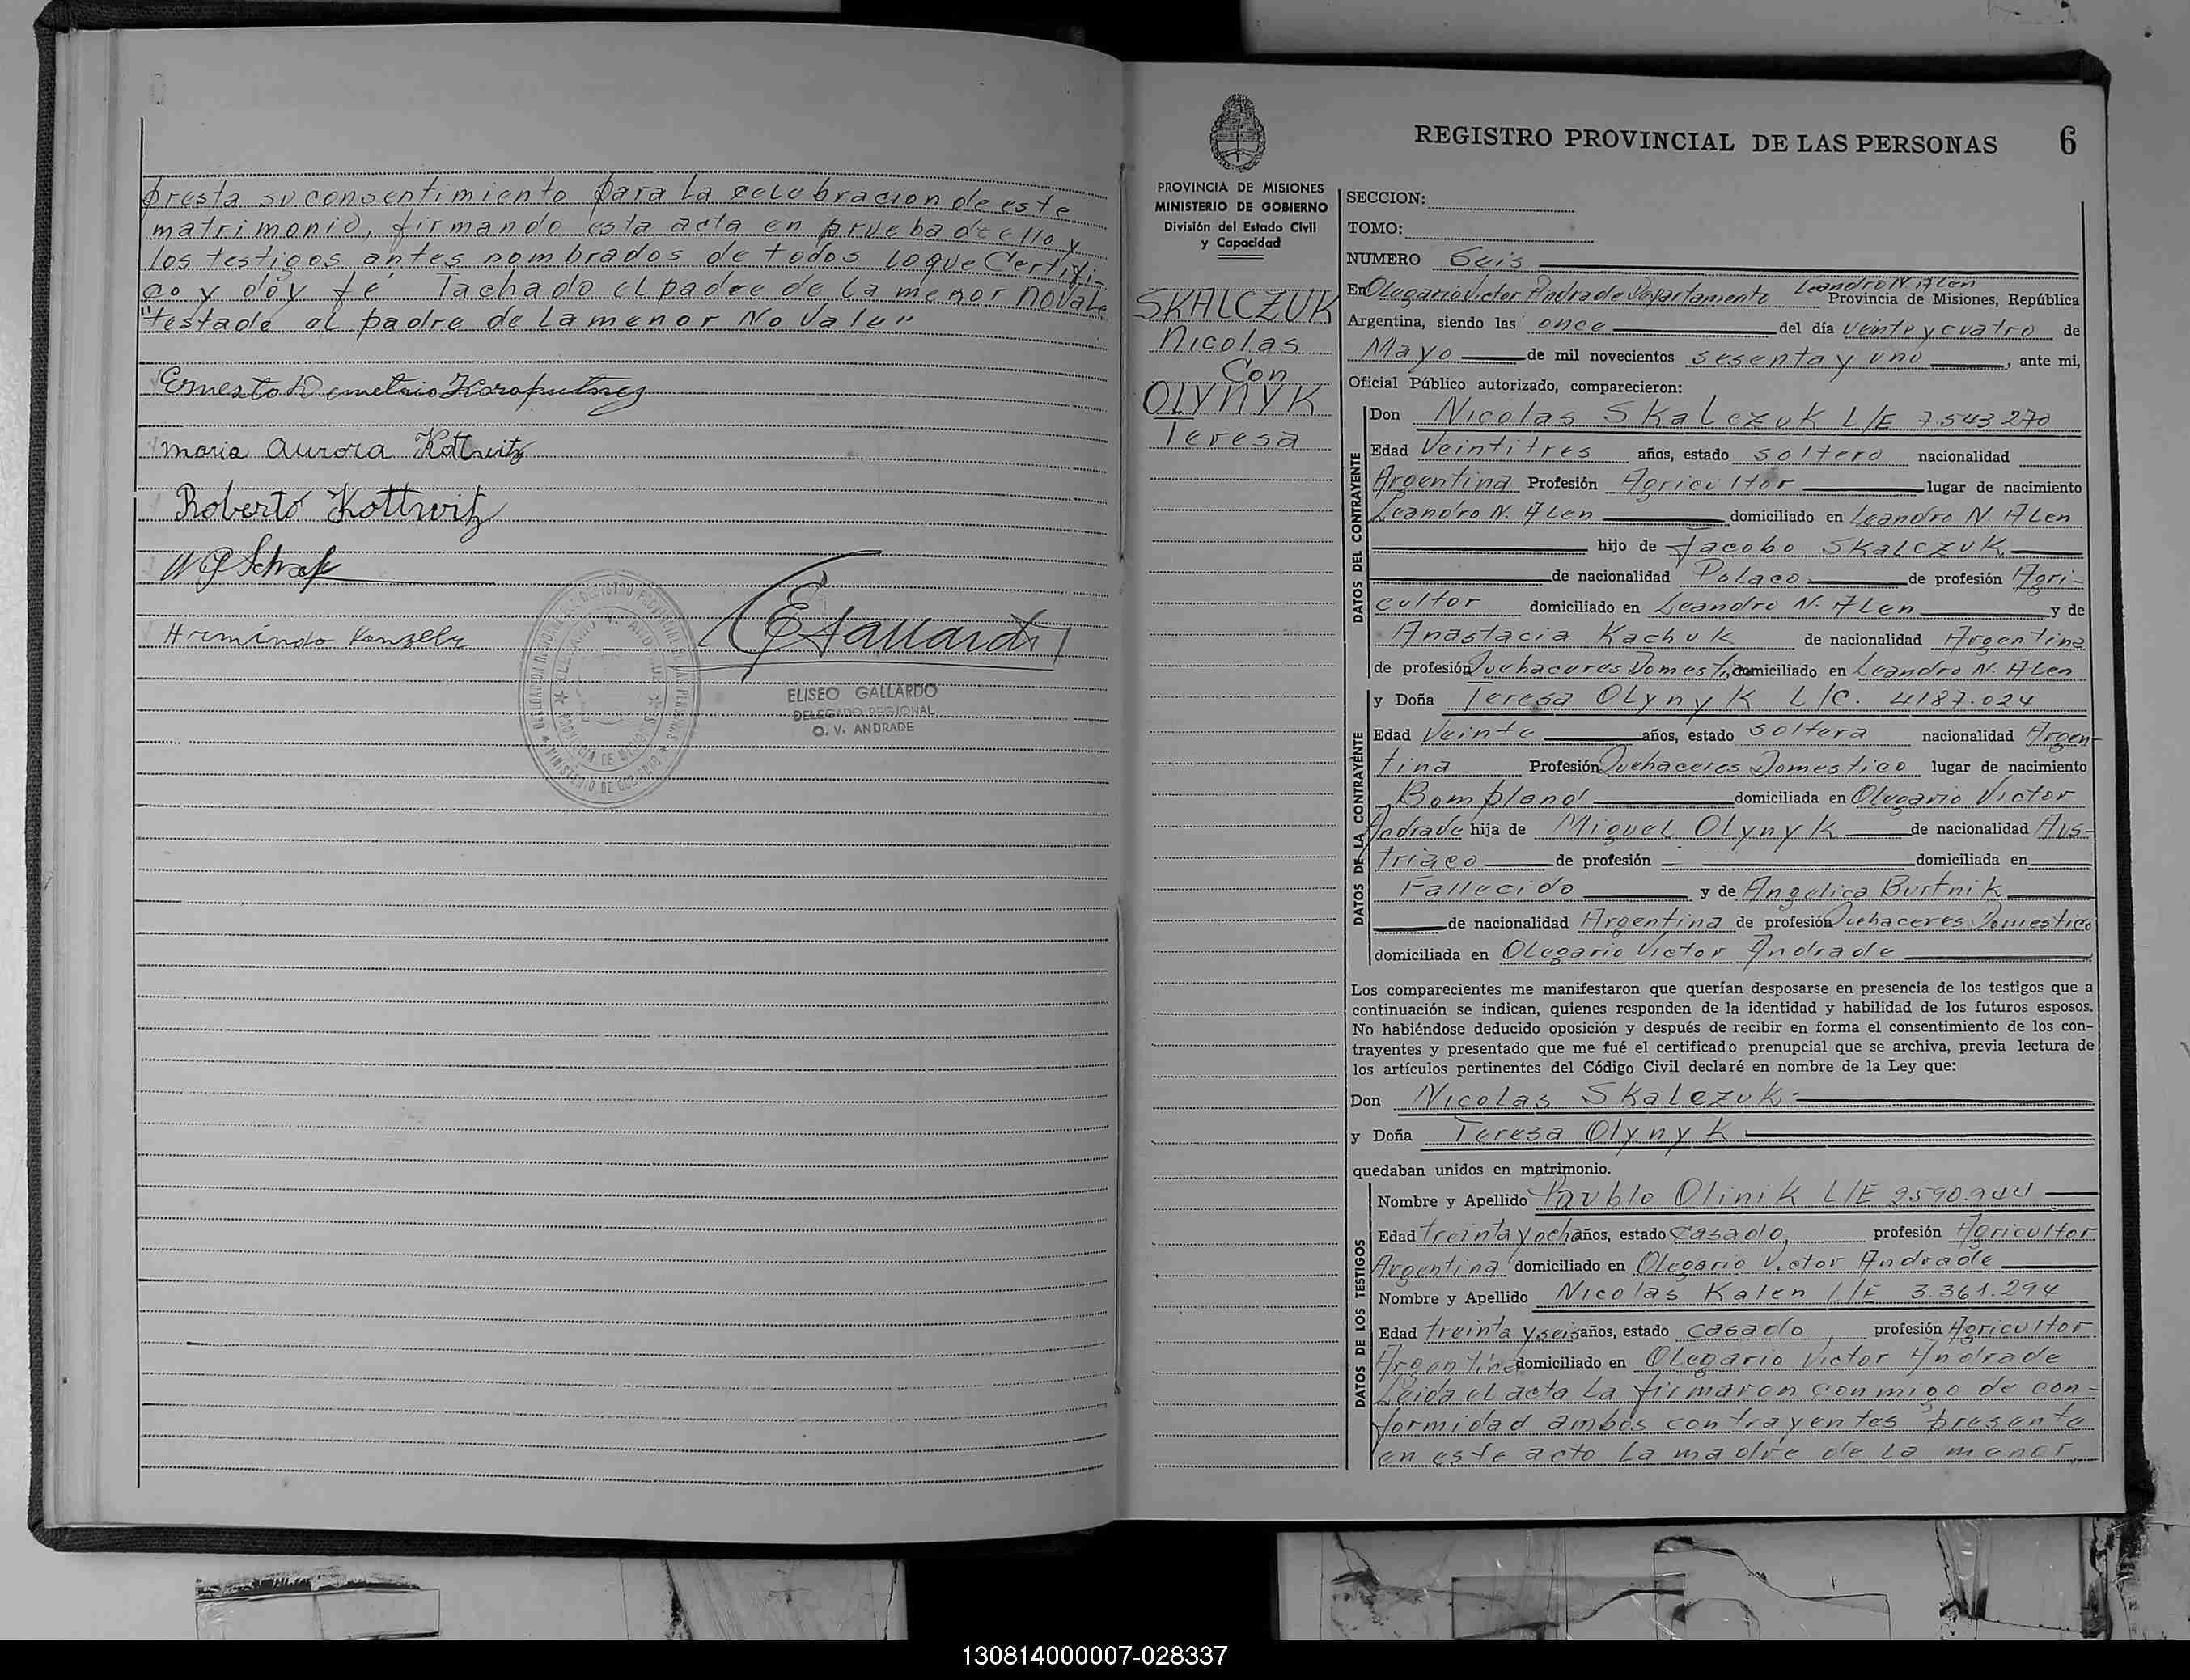 presta su consentimiento para la celebracion de este
matrimonio, firmando esta acta en prueba de ello y
los testigos antes nombrados de todos lo que Certifi-
co y doy fé Tachado el padre de la menor no vale
"testado al padre de la menor No Vale"
Ernesto Demetrio
maria aurora Kottwitz
Roberto Kottwitz
Hermindo
EGallardo
ELISEO GALLARDO
DELEGADO REGIONAL
O. V. ANDRADE
PROVINCIA DE MISIONES
MINISTERIO DE GOBIERNO
División del Estado Civil
y Capacidad
SKALCZUK
Nicolas
Con
OLYNYK
Teresa
REGISTRO PROVINCIAL DE LAS PERSONAS 6
SECCION:
TOMO:
NUMERO Seis
En Olegario Victor Andrade Departamento Leandro N. Alen Provincia de Misiones, República
Argentina, siendo las once del día veinte y cuatro de
Mayo de mil novecientos sesenta y uno, ante mi,
Oficial Público autorizado, comparecieron:
DATOS DEL CONTRAYENTE
Don Nicolas Skalczuk L/E 7.543270
Edad Veintitres años, estado soltero nacionalidad
Argentina Profesión Agricultor lugar de nacimiento
Leandro N. Alen domiciliado en Leandro N. Alen
hijo de Jacobo Skalczuk
de nacionalidad Polaco de profesión Agri-
cultor domiciliado en Leandro N. Alen y de
Anastacia Kachuk de nacionalidad Argentina
de profesión Quehaceres Domesti. domiciliado en Leandro N. Alen
DATOS DE LA CONTRAYENTE
y Doña Teresa Olynyk L/C. 4187.024
Edad Veinte años, estado soltera nacionalidad Argen-
tina Profesión Quehaceres Domestico lugar de nacimiento
Bompland domiciliada en Olegario Victor
Andrade hija de Miguel Olynyk de nacionalidad Aus-
triaco de profesión domiciliada en
Fallecido y de Angelica Burtnik
de nacionalidad Argentina de profesión Quehaceres Domestico
domiciliada en Olegario Victor Andrade
Los comparecientes me manifestaron que querían desposarse en presencia de los testigos que a
continuación se indican, quienes responden de la identidad y habilidad de los futuros esposos.
No habiéndose deducido oposición y después de recibir en forma el consentimiento de los con-
trayentes y presentado que me fué el certificado prenupcial que se archiva, previa lectura de
los artículos pertinentes del Código Civil declaré en nombre de la Ley que:
Don Nicolas Skalczuk.
y Doña Teresa Olynyk
quedaban unidos en matrimonio.
DATOS DE LOS TESTIGOS
Nombre y Apellido Pablo Olinik L/E
Edad treinta y ocho años, estado casado, profesión Agricultor
Argentina domiciliado en Olegario Victor Andrade
Nombre y Apellido Nicolas Kalen L/E 3.361.294
Edad treinta y seis años, estado casado, profesión Agricultor
Argentina domiciliado en Olegario Victor Andrade
Leida el acta la firmaron conmigo de con-
formidad ambos contrayentes presente
en este acto la madre de la menor,
130814000007-028337